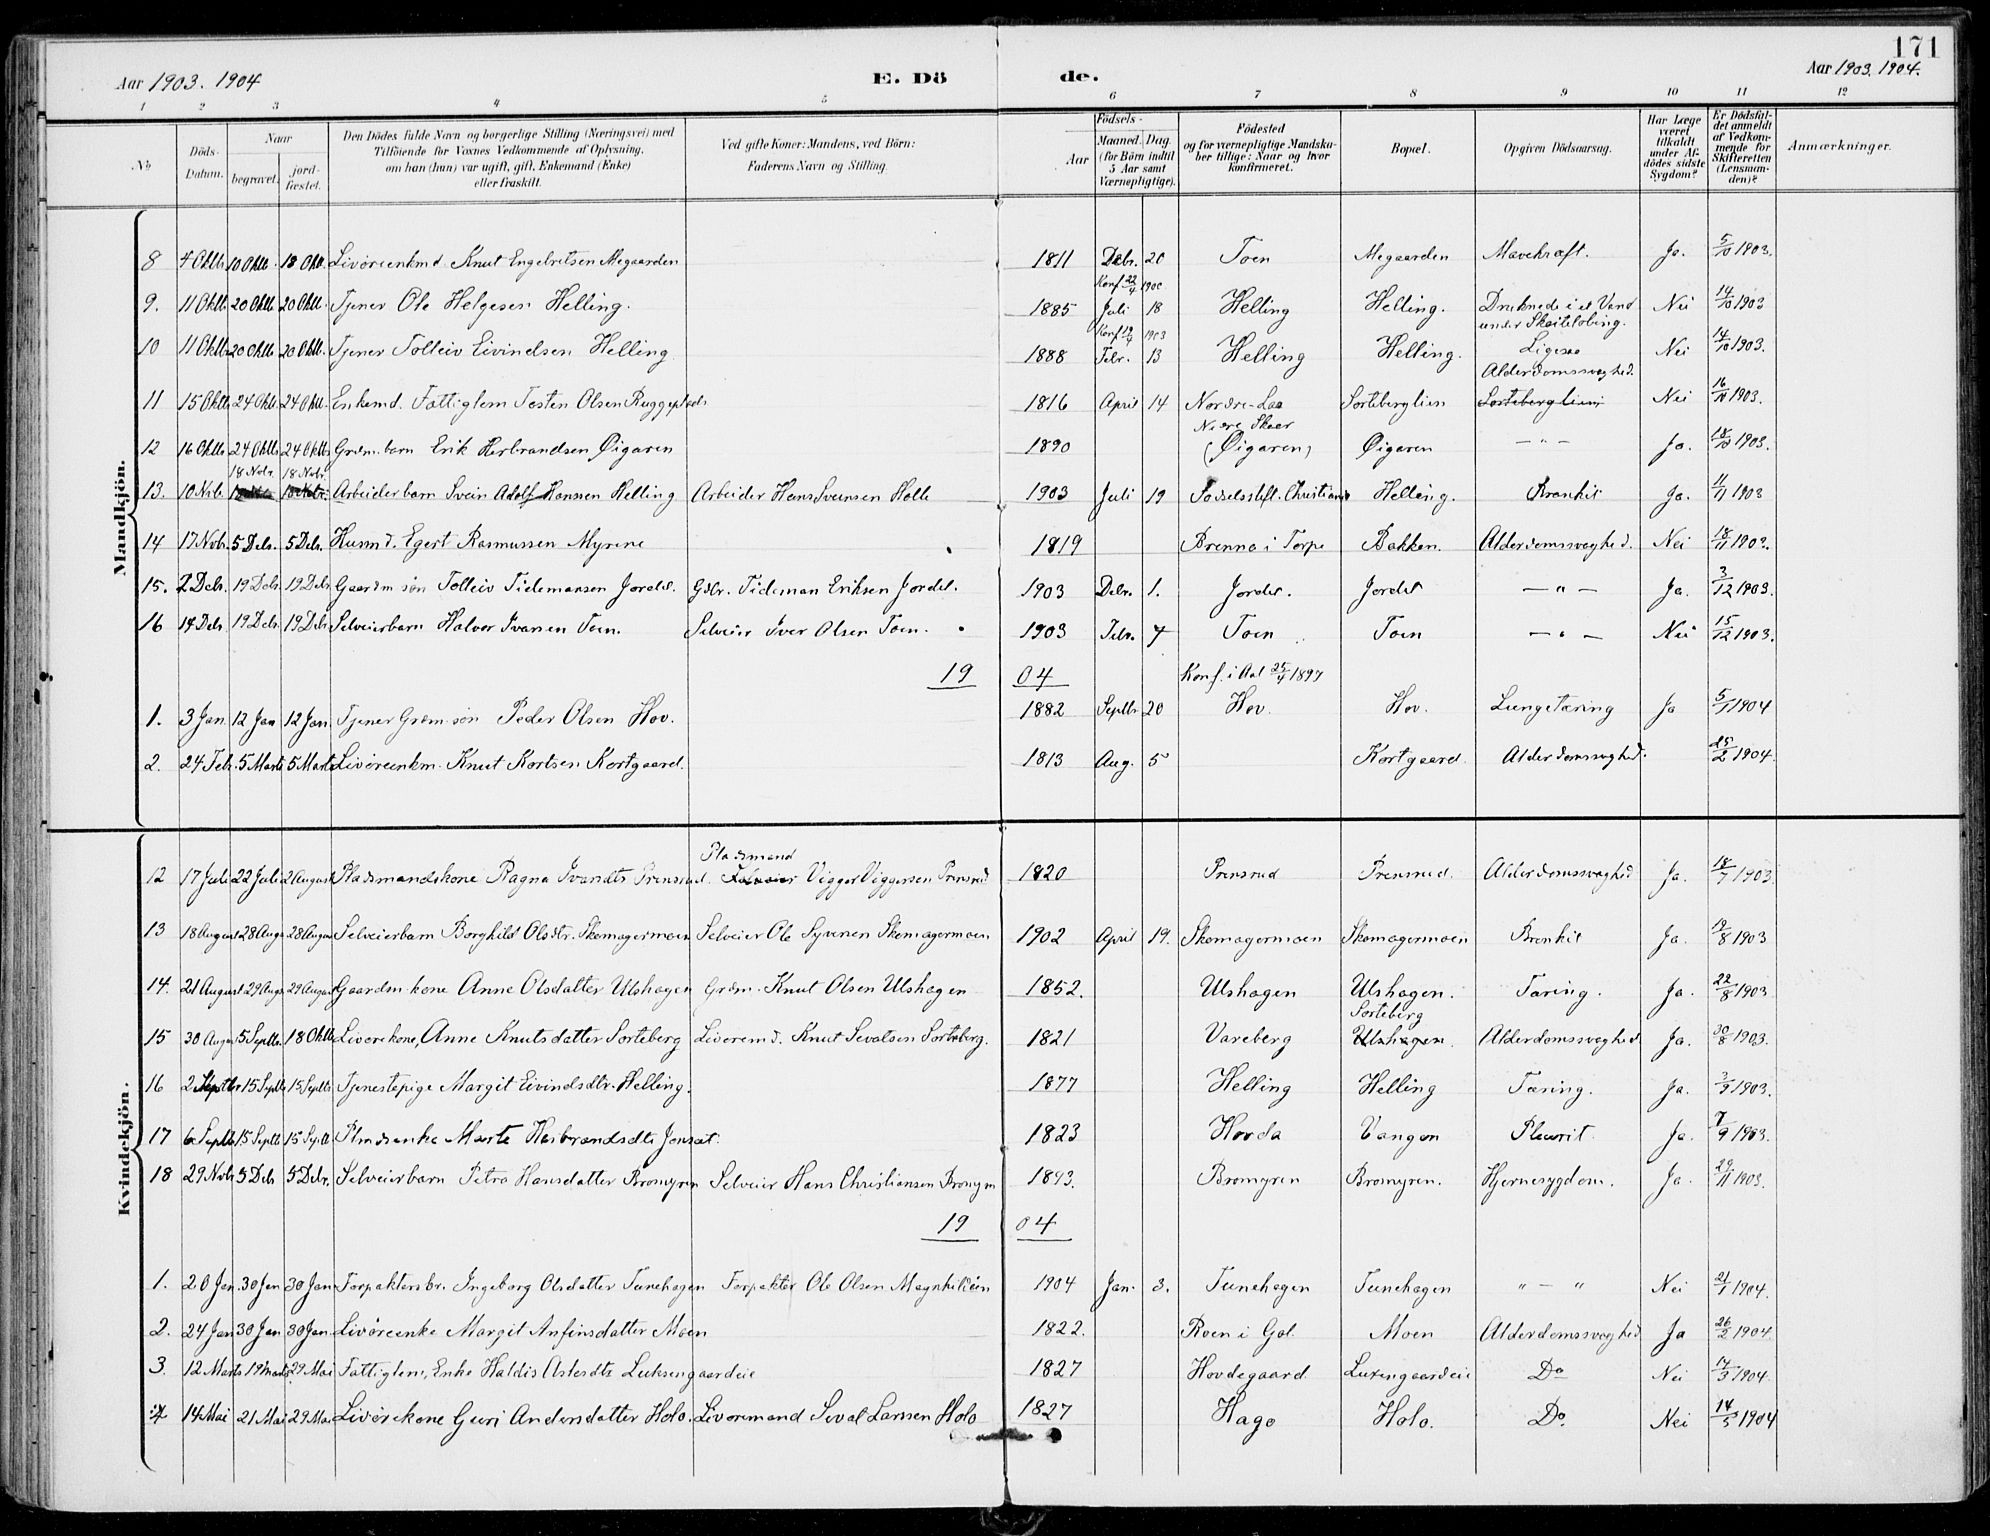 171
Aar 1903. 1904
E. Dö
de.
Aar 1903. 1904.
1 2 3 4 5 6 7 8 9 10 11 12
No
Döds-Datum.
Naar
begravet.
jordfæstet.
Den Dödes fulde Navn og borgerlige Stilling (Næringsvei) med
Tilföiende for Voxnes Vedkommende af Oplysning,
om han (hun) var ugift, gift, Enkemand (Enke)
eller fraskilt.
Ved gifte Koner: Mandens, ved Börn:
Faderens Navn og Stilling.
Födsels-
Aar
Maaned. Dag.
(for Börn indtil
5 Aar samt
Værnepligtige).
Födested
og for værnepligtige Mandskaber tillige: Naar og hvor
konfirmeret.
Bopæl.
Opgiven Dödsaarsag.
Har Læge
været
tilkaldt
under Afdödes sidste
Sygdom?
Er Dödsfaldet anmeldt
af Vedkommende for
Skifteretten
(Lensmanden)?
Anmærkninger.
Mandkjön.
8 4 Oktb. 10 Oktb. 18 Okt. Livöreenkmd. Knut Engebretsen Megaarden 1811 Debr. 20 Toen Megaarden Mavekræft. Ja. 5/10 1903.
Konf 22/4 1900
9. 11 Oktb 20 Oktb 20 Oktb. Tjener Ole Helgesen Helling. 1885 Juli 18 Helling Helling. Druknede i et Vand under Skøiteløbing. Nei 14/10 1903
Konf 19/4 1903
10 11 Oktb 20 Oktb 20 Oktb. Tjener Tolleiv Eivindsen Helling 1888 Febr. 13 Helling Helling. Ligesaa Nei 14/10 1903.
Alderdomssvaghed.
11 15 Oktb 24 Oktb. 24 Okt. Enkemd. Fattiglem Tosten Olsen Ruggeplads 1816 April 14 Nordre-Laa Sorteberglien Sorteberglien Nei 16/10 1903.
Nedre Skaar
12 16 Oktb 24 Oktb 24 Oktb Grdm. barn Erik Herbrandsen Øigaren 1890 (Øigaren) Øigaren — " — Ja. 18/10 1903.
18 Nobr. 18 Nobr.
13. 10 Nvb. Arbeiderbarn Svein Adolf Hanssen Helling Arbeider Hans Svensen Holle 1903 Juli 19 Fødselsstift. Christiania Helling. Bronkit Ja. 11/11 1903
14 17 Nobr. 5 Debr. 5 Debr. Husmd. Egert Rasmussen Myrene 1819 Brenna i Torpe Bakken. Alderdomssvaghed. Nei 18/11 1903.
15. 2 Debr. 19 Debr. 19 Debr Gaardm søn Tolleiv Tidemansen Jordet. Gdbr. Tideman Eriksen Jordet. 1903 Debr. 1. Jordet. Jordet — " — Ja. 3/12 1903.
16 14 Debr 19 Debr. 19 Debr Selveierbarn Halvor Ivarsen Toen. Selveier Iver Olsen Toen. 1903 Febr. 7 Toen Toen — " — Nei 15/12 1903.
19 04 Konf. i Aal 25/4 1897
1. 3 Jan. 12 Jan 12 Jan. Tjener Grdm. søn Peder Olsen Hov. 1882 Septbr 20 Hov. Hov. Lungetæring Ja 5/1 1904
2. 24 Feb. 5 Marts 5 Marts Livöreenkm. Knut Kortsen Kortgaard. 1813 Aug. 5 Kortgaard. Alderdomssvaghed. 25/2 1904.
Kvindekjön.
Pladsmand
12 17 Juli 22 Juli 2 August Pladsmandskone Ragna Ivarsdtr Prensrud. Vigger Viggersen Prensrud 1820 Prensrud Prensrud. Alderdomssvaghed Ja. 18/7 1903.
13 18 August 28 Aug. 28 Aug. Selveierbarn Borghild Olsdtr. Skomagermoen Selveier Ole Syversen Skomagermoen 1902 April 19. Skomagermoen Skomagermoen Bronkit Ja. 19/8 1903
14. 21 August 29 Aug. 29 August Gaardm. kone Anne Olsdatter Ulshagen Grdm. Knut Olsen Ulshagen 1852. Ulshagen Ulshagen. Tæring. Ja. 22/8 1903
Sorteberg
15 30 Aug. 5 Septbr. 18 Oktb Livörekone, Anne Knutsdatter Sorteberg Livöremd. Knut Sevatsen Sorteberg. 1821 Vareberg Ulshagen. Alderdomssvaghed. Ja. 30/8 1903.
16 2 Septbr 15 Septb 15 Septb Tjenestepige Margit Eivindsdtr. Helling. 1877 Helling Helling Tæring. Ja. 3/9 1903.
17 6 Septb 15 Septb 15 Septb Plmdsenke Marte Herbrandsdtr Jonsæt. 1823 Hovda Vangen Pleurit. Ja. 7/9 1903.
18 29 Nobr 5 Debr 5 Debr. Selveierbarn Petra Hansdatter Bromyren Selveier Hans Christiansen Bromyren 1893. Bromyren Bromyren. Hjernesygdom. Ja. 29/11 1903.
19 04
1. 20 Jan. 30 Jan 30 Jan Forpaktersbr. Ingeborg Olsdatter Tunehagen Forpakter Ole Olsen Magnhildöen 1904 Jan. 3. Tunehagen Tunehagen " — " Nei 21/1 1904.
2. 24 Jan 30 Jan 30 Jan. Livöreenke Margit Anfinsdatter Moen 1822. Roen i Gol. Moen Alderdomssvaghed Ja 26/2 1904.
3. 12 Marts 19 Marts 29 Mai Fattiglem, Enke Haldis Aslesdtr Luksengaardeie 1827 Hovdegaard Luxengaardeie Do Nei 14/3 1904.
4 14 Mai 21 Mai 29 Mai Livörekone Guri Andersdatter Holo. Livöremand Sevat Larssen Holo 1827 Hago Holo. Do. Nei 14/5 1904